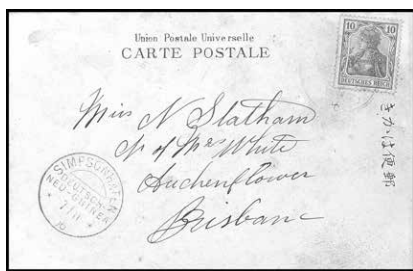 Union Postale Universelle
CARTE POSTALE
10 10
DEUTSCHES REICH
きかは便郵
Miss N Statham
Mrs White
Auchenflower
Brisbane
SIMPSONHAFEN
DEUTSCH-
NEU-GUINEA
7/11